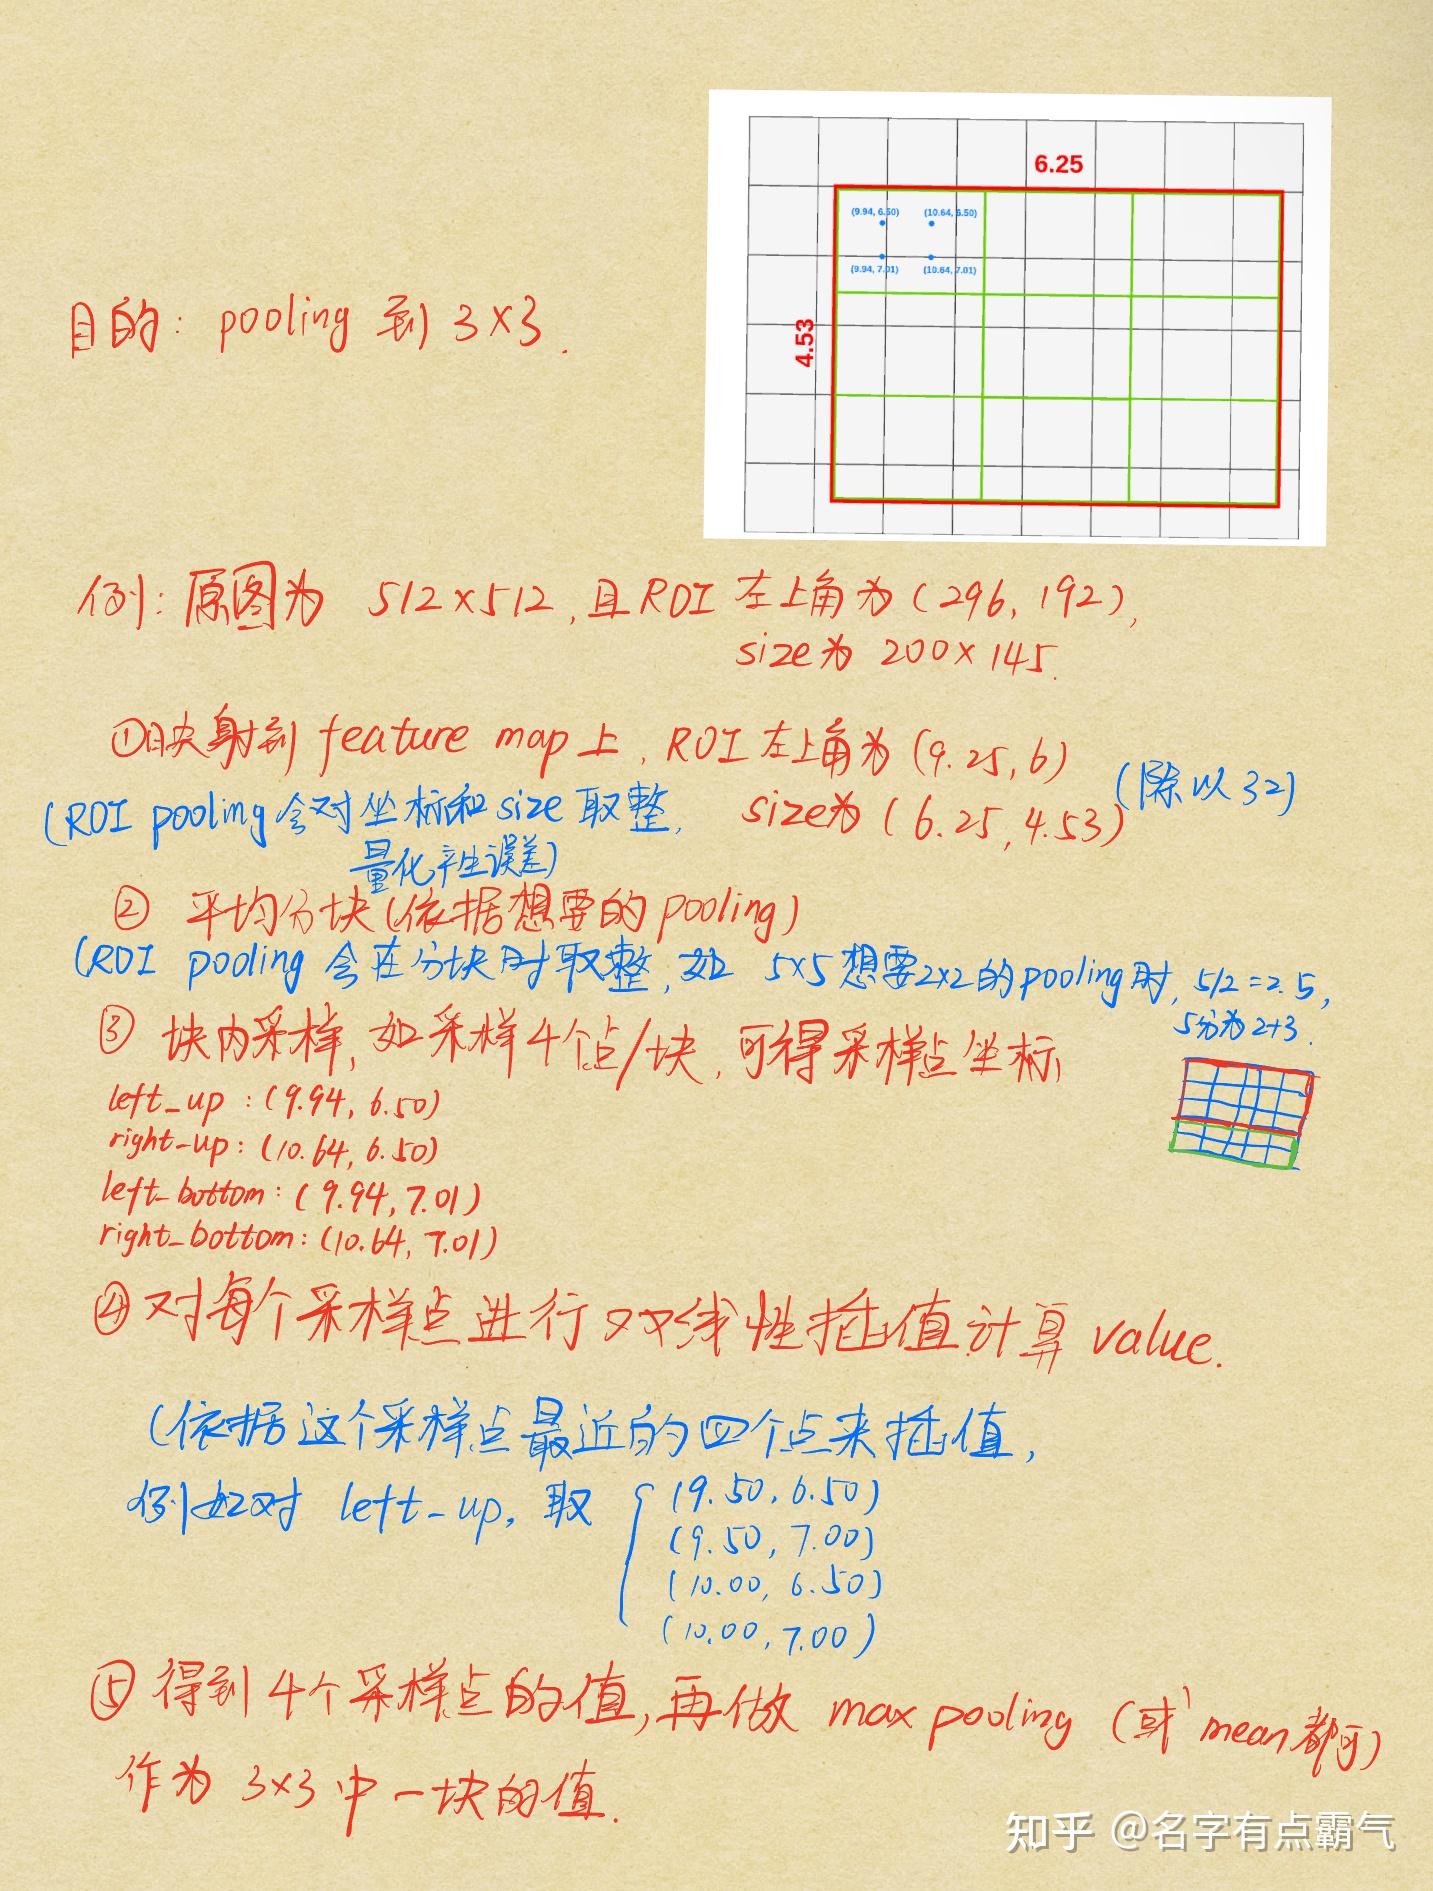 6.25
(9.94, 6.50) (10.64, 6.50)
(9.94, 7.01) (10.64, 7.01)
4.53
目的: pooling 到 3×3.
例: 原图为 512×512, 且ROI 左上角为 (296, 192),
size为 200×145.
①映射到 feature map上, ROI左上角为 (9.25, 6)
(除以32)
(ROI pooling会对坐标和size取整,
size为 (6.25, 4.53)
量化产生误差)
② 平均分块(依据想要的pooling)
(ROI pooling 会在分块时取整, 如 5×5想要2×2的pooling时, 5/2=2.5,
5分为2+3.
③ 块内采样, 如采样4个点/块, 可得采样点坐标
left_up : (9.94, 6.50)
right-up: (10.64, 6.50)
left_bottom: (9.94, 7.01)
right_bottom: (10.64, 7.01)
④对每个采样点进行双线性插值计算 value.
(依据这个采样点最近的四个点来插值,
例如对 left-up, 取 { (9.50, 6.50)
(9.50, 7.00)
(10.00, 6.50)
(10.00, 7.00)
⑤得到4个采样点的值, 再做 max pooling (或mean都可)
作为 3×3中一块的值.
知乎 @名字有点霸气